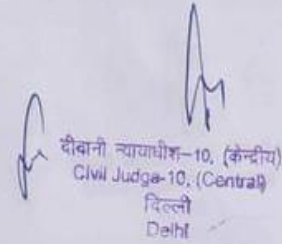 दीवानी न्यायाधीश-10, (केन्द्रीय)
Civil Judge-10, (Central)
दिल्ली
Delhi